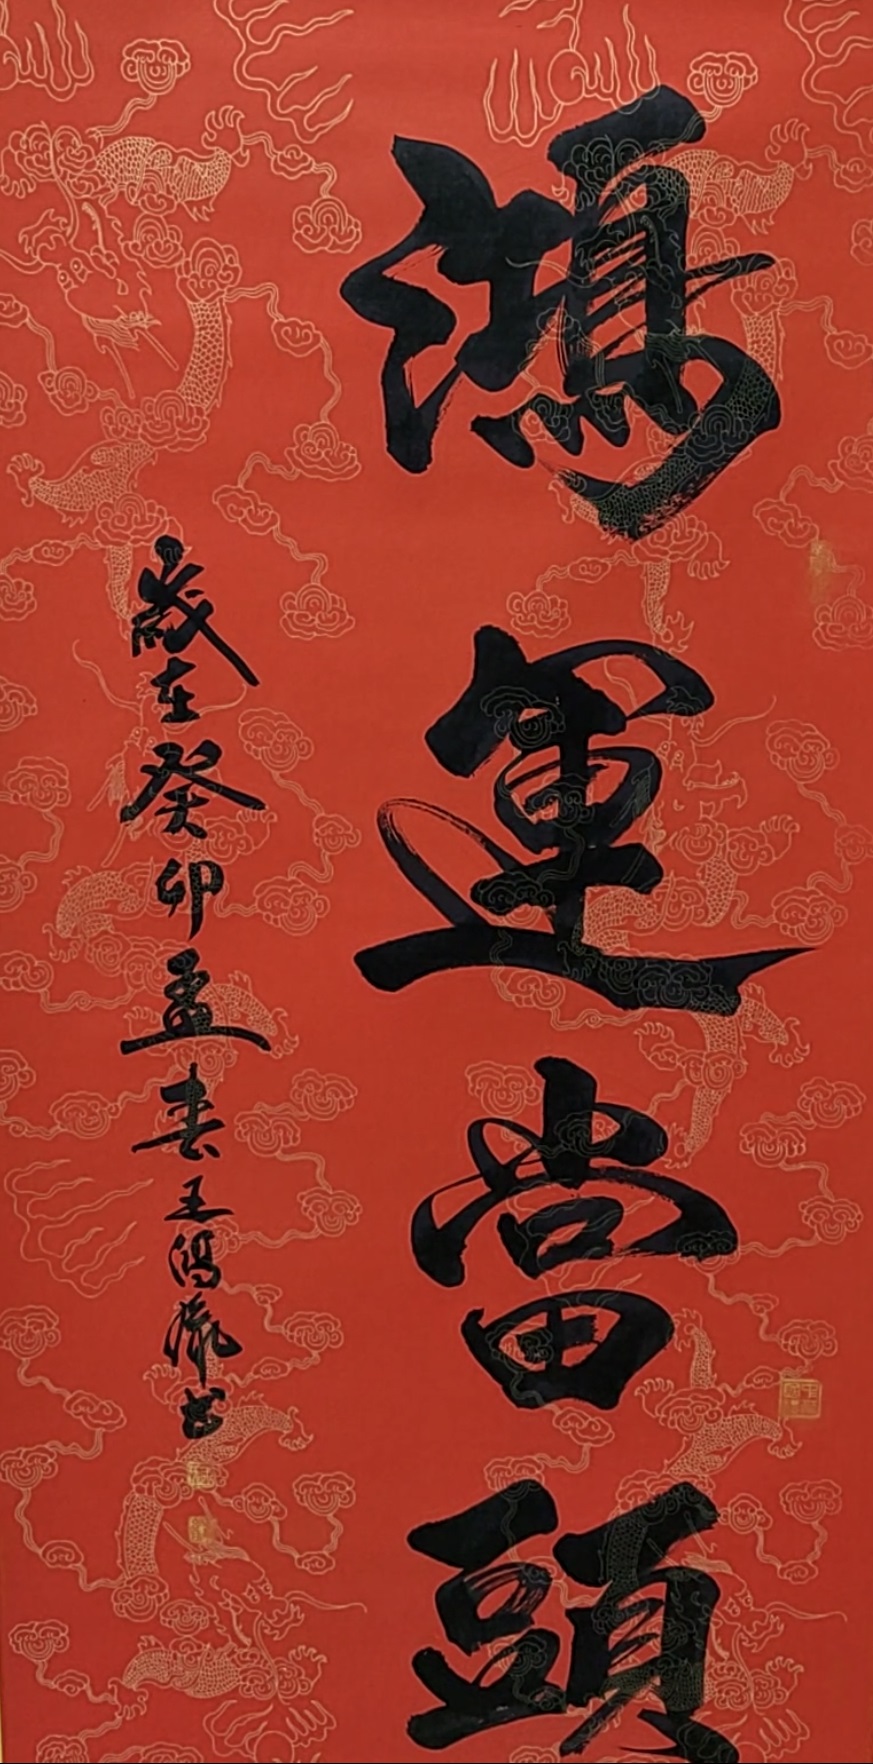 鴻運當頭
歲在癸卯孟春王鴻儒书